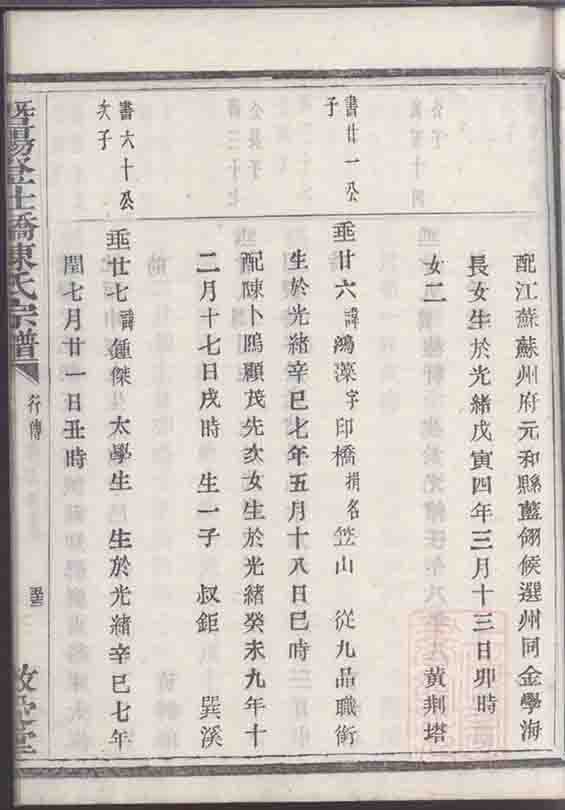 配江蘇蘇州府元和縣藍翎候選州同金學海
長女生於光緒戊寅四年三月十三日卯時
女二 黄荆塔
書廿一公
子
垂廿六諱鴻藻字印橋捐名笠山 從九品職銜
生於光緒辛巳七年五月十八日巳時
配陳卜鴟顧茂先次女生於光緒癸未九年十
二月十七日戌時 生一子 叔鉅 巽溪
書六十公
次子
垂廿七諱鍾傑 太學生 生於光緒辛巳七年
閏七月廿一日丑時
暨陽登仕橋陳氏宗譜
行傳
敬愛堂